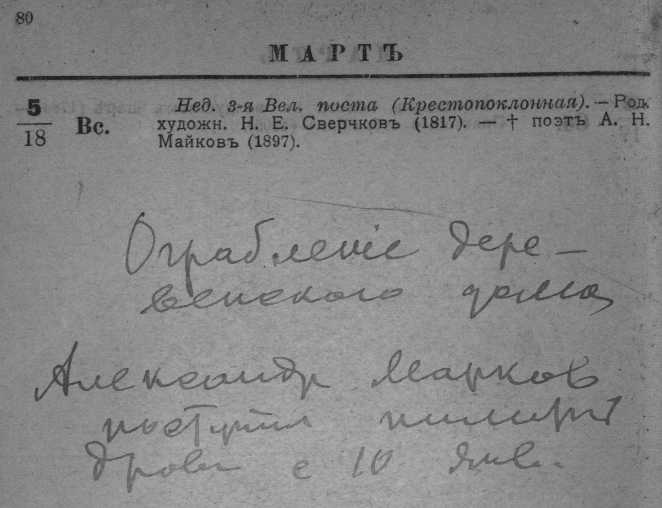 80
МАРТЪ
5/18 Вс. Нед. 3-я Вел. поста (Крестопоклонная). — Род.
художн. Н. Е. Сверчковъ (1817). — † поэтъ А. Н.
Майковъ (1897).
Ограбленіе дере-
венского дома
Александр Марков
поступил пилить
дрова с 10 янв.